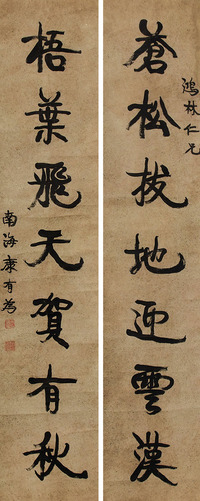 蒼松拔地迎雲漢
鴻枚仁兄
梧葉飛天賀有秋
南海康有為